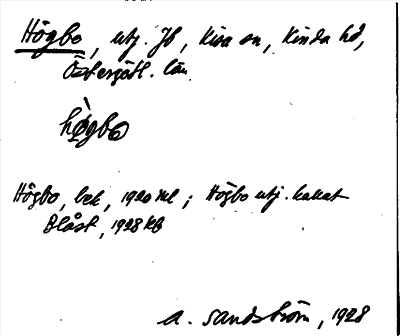 Högbo, utj. Jb, Kisa sn, Kinda hd,
Östergötl. län
hø̀gbo
Högbo, bek, 1920 ml; Högbo utj. kallat
Blåst, 1928 kb
A. Sandström, 1928